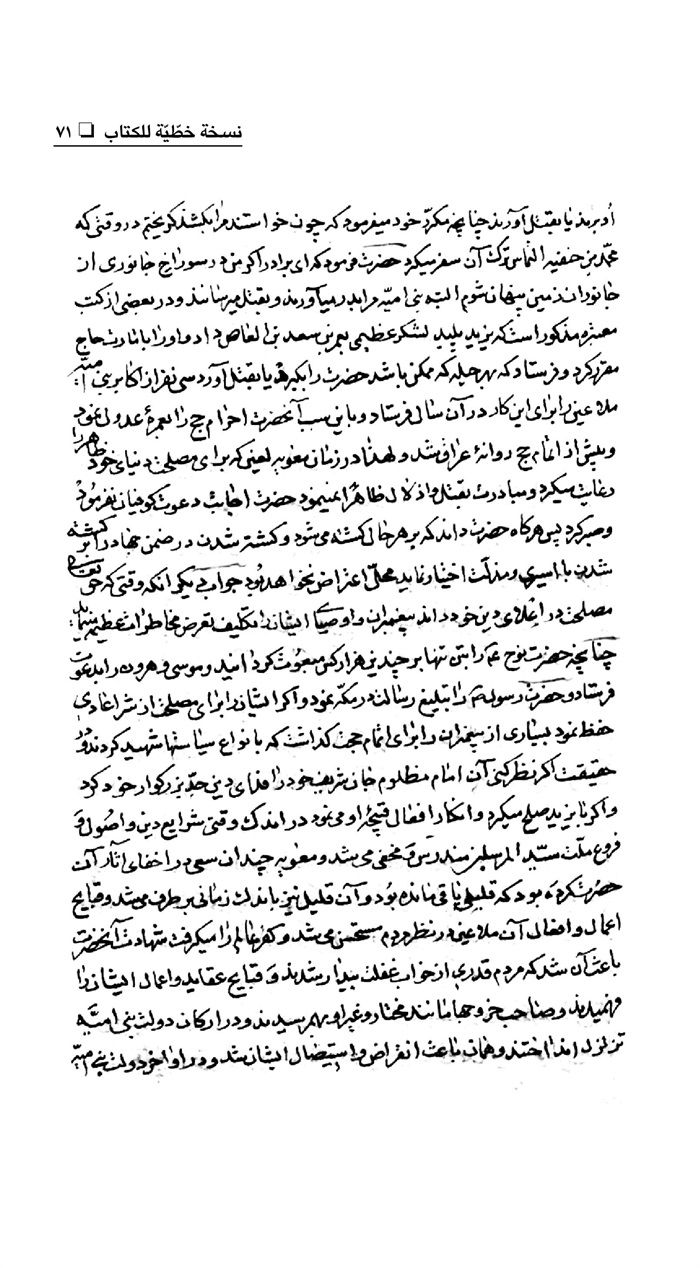 نسخة خطّيّة للكتاب ❏ ٧١
او برند یا بقتل آورند چنانچه مکرّر خود میفرمود که چون خواستند مرا بکشند گریختم در وقتی که
محمّد بن حنفیه التماس ترک آن سفر میکرد حضرت فرمود که ای برادر اگر من در سوراخ جانوری از
جانوران زمین پنهان شوم البته بنی امیّه مرا بدر میآورند و بقتل میرسانند و در بعضی از کتب
معتبره مذکور است که یزید پلید لشکر عظیمی بعمر بن سعد بن العاص داد و او را بامارت حاج
مقرر کرد و فرستاد که بهر حیله که ممکن باشد حضرت را بگیرد یا بقتل آورد سی نفر از اکابر بنی امیّه
ملاعین را برای این کار در آن سال فرستاد و باین سبب آنحضرت احرام حج را بعمرهٔ عدول نمود
و پیش از اتمام حج روانهٔ عراق شد و لهذا در زمان معویه لعین که برای مصلحت دنیای خود ظاهرا
رعایت میکرد و مبادرت بقتل و اذلال ظاهرا نمینمود حضرت اجابت دعوت کوفیان نفرمود
و صبر کرد پس هرگاه حضرت داند که بر هر حال کشته می‌شود و کشته شدن در ضمن جهاد را بر کشته
شدن با اسیری و مذلّت اختیار نماید محلّ اعتراض نخواهد بود جواب دیگر آنکه وقتی که حق تعالی
مصلحت در اعلای دین خود داند پیغمبران و اوصیای ایشان را تکلیف بتعرض مخاطرات عظیمه مینماید
چنانچه حضرت نوح ع را تن تنها بر چندین هزار کس مبعوث گردانید و موسی و هرون را بدعوت
فرستاد و حضرت رسول ص را بتبلیغ رسالت در مکّه نمود و اگر ایشان را برای مصلحت از شر اعادی
حفظ نمود بسیاری از پیغمبران را برای اتمام حجت گذاشت که بانواع سیاستها شهید کردند و در
حقیقت اگر نظر کنی آن امام مظلوم جان شریف خود را فدای دین جدّ بزرگوار خود کرد
و اگر با یزید صلح میکرد و انکار افعال قبیحهٔ او می نمود در اندک وقتی شرایع دین و اصول و
فروع ملّت سیّد المرسلین مندرس و مخفی می شد و معویه چندان سعی در اخفای آثار آن
حضرت کرده بود که قلیلی باقی مانده بود و آن قلیل نیز باندک زمانی بر طرف می شد و قبایح
اعمال و افعال آن ملاعین در نظر مردم مستحسن می شد و کفر عالم را میگرفت شهادت آنحضرت
باعث آن شد که مردم قدری از خواب غفلت بیدار شدند و قبایح عقاید و اعمال ایشان را
فهمیدند و صاحب خروجها مانند مختار و غیر او بهم رسیدند و در ارکان دولت بنی امیّه
تزلزل انداختند و همان باعث انقراض و استیصال ایشان شد و در اواخر دولت بنی امیّه